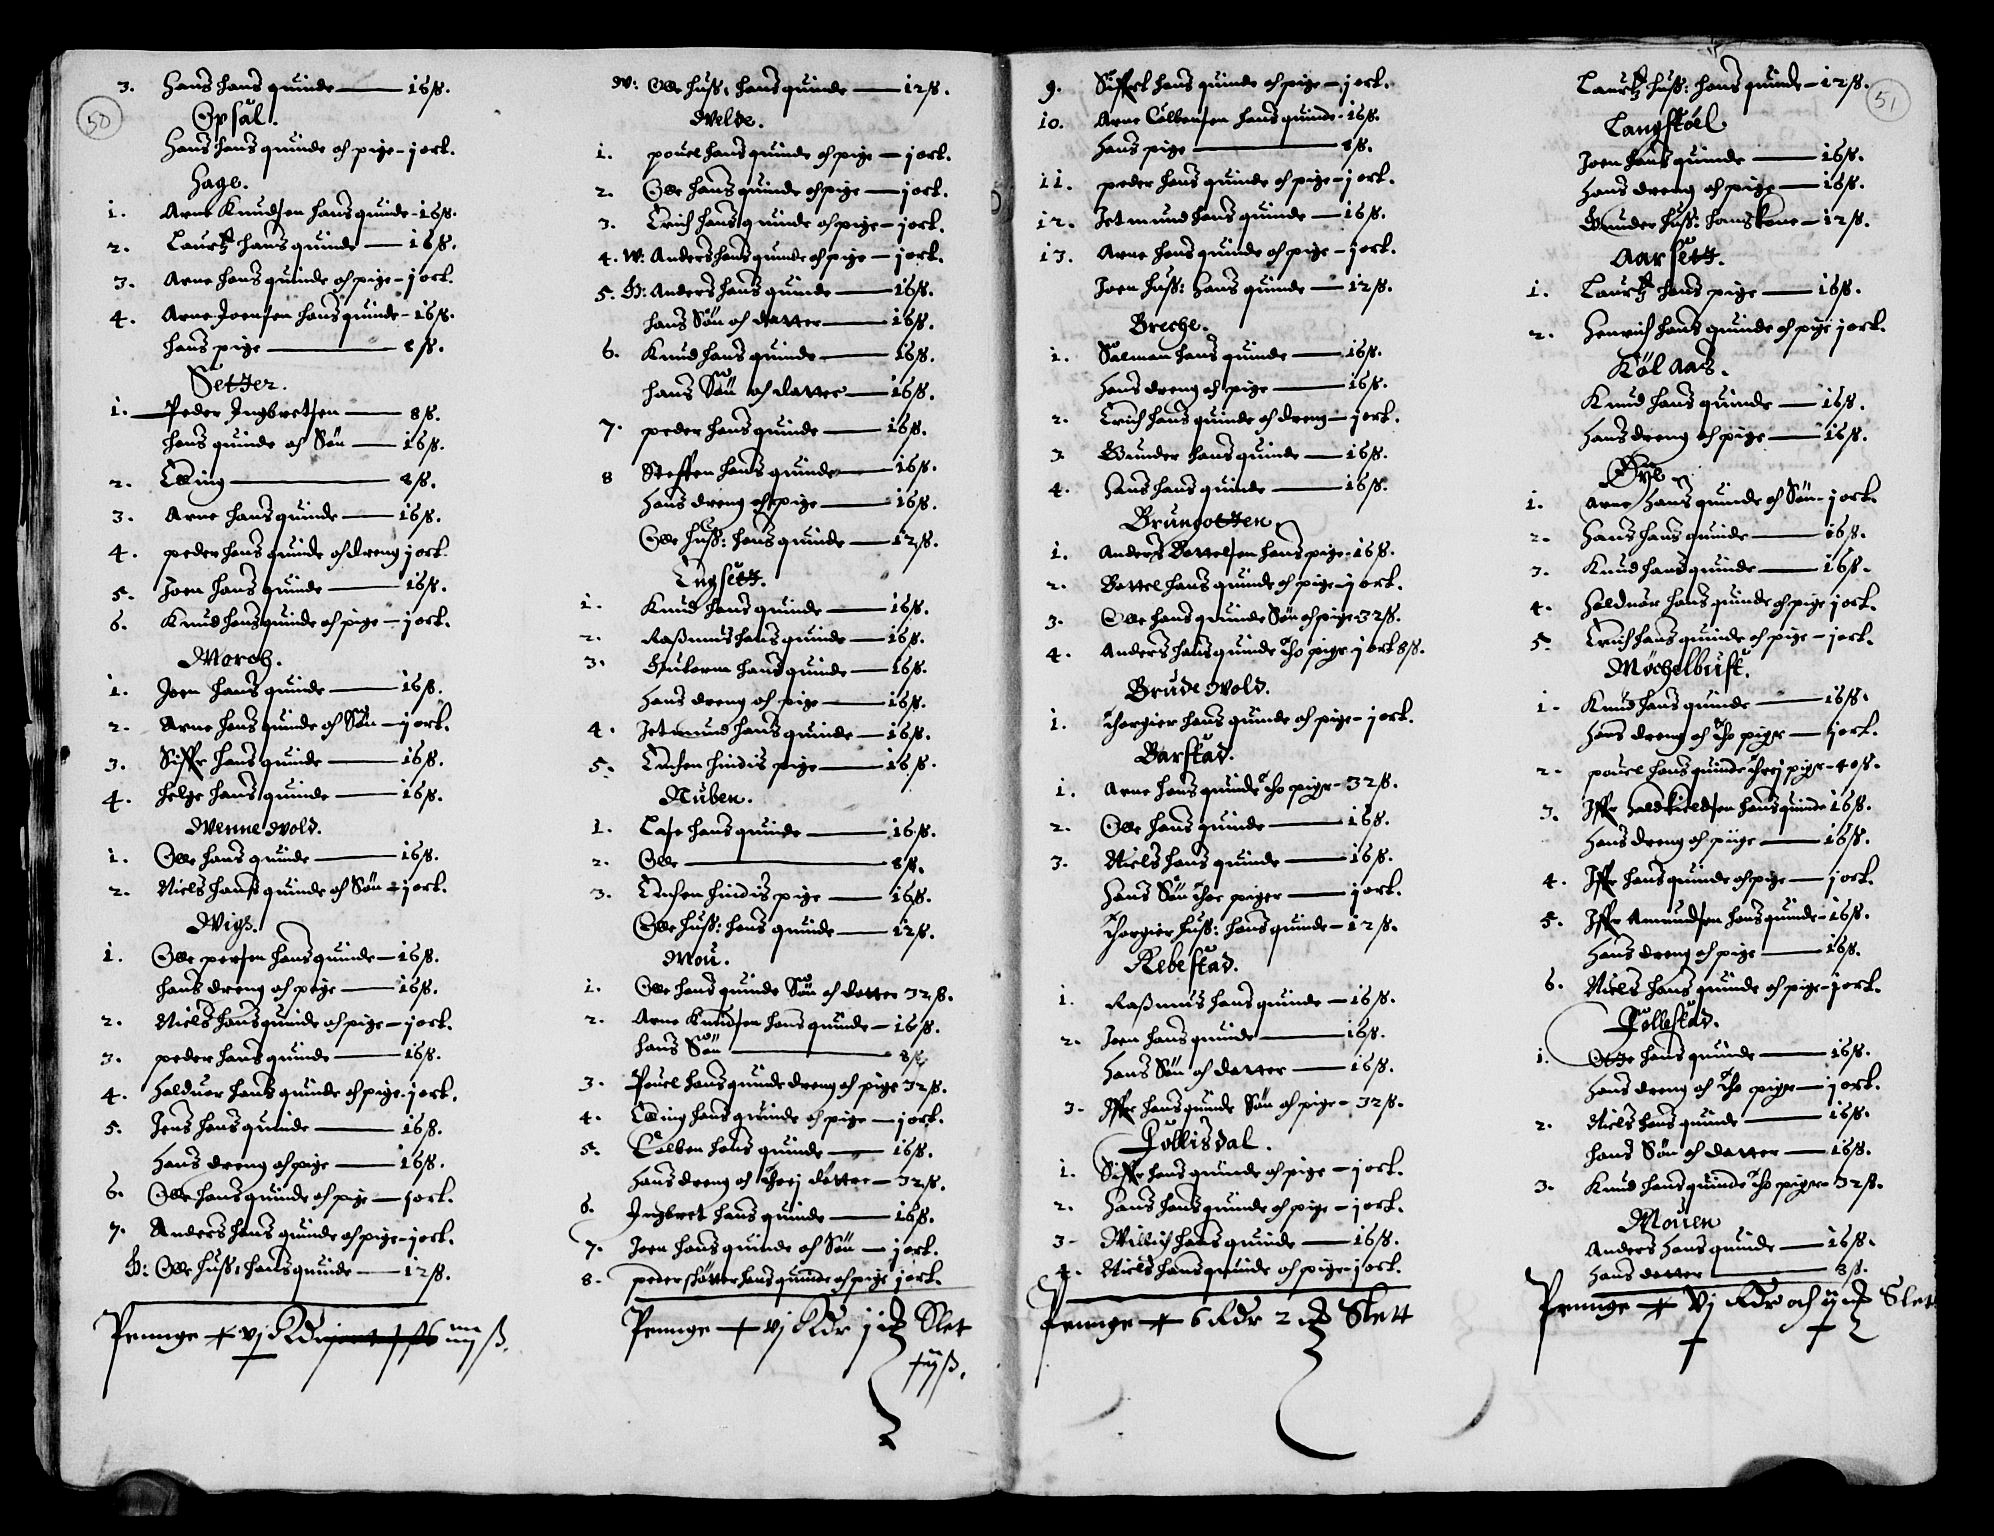 50
3. Hans hans quinde — 16 ß.
Opsal.
Hans hans quinde och pige – j ort.
Hage.
1. Arne Knudsen hans quinde – 16 ß.
2. Lauritz hans quinde — 16 ß.
3. Arne hans quinde och pige – j ort.
4. Arne Joensen hans quinde – 16 ß.
hans pige — 8 ß.
Setter.
1. Peder Ingbretsen — 8 ß.
hans quinde och Søn — 16 ß.
2. Elling — 8 ß.
3. Arne hans quinde — 16 ß.
4. peder hans quinde och dreng j ort.
5. Joen hans quinde — 16 ß.
6. Knud hans quinde och pige – j ort.
Morch.
1. Joen hans quinde — 16 ß.
2. Arne hans quinde och Søn – j ort.
3. Siffr hans quinde — 16 ß.
4. Helge hans quinde — 16 ß.
Wennewold.
1. Olle hans quinde — 16 ß.
2. Niels hans quinde och Søn – j ort.
Wigs.
1. Olle persen hans quinde – 16 ß.
hans dreng och pige — 16 ß.
2. Niels hans quinde och pige – j ort.
3. peder hans quinde — 16 ß.
4. Halduor hans quinde och pige – j ort.
5. Jens hans quinde — 16 ß.
Hans dreng och pige — 16 ß.
6. Olle hans quinde och pige – j ort.
7. Anders hans quinde och pige – j ort.
H: Olle huss: hans quinde — 12 ß.
Penninge + vj Rdr iiij ß.
W: Olle huss: hans quinde — 12 ß.
Welde.
1. pouel hans quinde och pige – j ort.
2. Olle hans quinde och pige — j ort.
3. Erich hans quinde och pige – j ort.
4. W: Anders hans quinde och pige – j ort.
5. H: Anders hans quinde — 16 ß.
hans Søn och datter — 16 ß.
6. Knud hans quinde — 16 ß.
hans Søn och datter – 16 ß.
7. peder hans quinde — 16 ß.
8 Steffen hans quinde — 16 ß.
Hans dreng och pige — 16 ß.
Olle huss: hans quinde — 12 ß.
Engsett.
1. Knud hans quinde — 16 ß.
2. Rasmus hans quinde — 16 ß.
3. Guttorm hans quinde — 16 ß.
Hans dreng och pige — 16 ß.
4. Jetmund hans quinde – 16 ß.
5. Enchen hindis pige — 16 ß.
Nuben.
1. Lasse hans quinde — 16 ß.
2. Olle — 8 ß.
3. Enchen hindis pige — 16 ß.
Olle huss: hans quinde — 12 ß.
Mou.
1. Olle hans quinde Søn och datter 32 ß.
2. Arne Knudsen hans quinde – 16 ß.
hans Søn — 8 ß.
3. Pouel hans quinde dreng och pige 32 ß.
4. Elling hans quinde och pige – j ort.
5. Colben hans quinde — 16 ß.
Hans dreng och threj døtter – 32 ß.
6. Ingbret hans quinde — 16 ß.
7. Joen hans quinde och Søn – j ort.
8. peder hans quinde och pige j ort.
Penninge + vj Rdr j Slet
+ ij ß.
9. Siffert hans quinde och pige – j ort.
10. Arne Colbensen hans quinde – 16 ß.
Hans pige — 8 ß.
11. peder hans quinde och pige – j ort.
12. Jetmund hans quinde – 16 ß.
13. Arne hans quinde och pige – j ort.
Joen huss: hans quinde – 12 ß.
Breche.
1. Salman hans quinde — 16 ß.
Hans dreng och pige — 16 ß.
2. Erich hans quinde och dreng – j ort.
3 Gunder hans quinde – 16 ß.
4. Hans hans quinde — 16 ß.
Brungotten.
1. Anders Bottelsen hans pige – 16 ß.
2. Bottel hans quinde och pige – j ort.
3. Olle hans quinde Søn och pige 32 ß.
4. Anders hans quinde tho piger – j ort 8 ß.
Brudewold.
1. Thorgier hans quinde och pige – j ort.
Barstad.
1. Arne hans quinde tho piger – 32 ß.
2. Olle hans quinde — 16 ß.
3. Niels hans quinde — 16 ß.
Hans Søn thoe piger — j ort.
Thorgier huss: hans quinde – 12 ß.
Rebestad.
1. Rasmus hans quinde – 16 ß.
2. Joen hans quinde — 16 ß.
Hans Søn och datter — 16 ß.
3. Iffr hans quinde Søn och pige – 32 ß.
Follisdal.
1. Siffr hans quinde och pige – j ort.
2. Hans hans quinde och pige – j ort.
3 – Willich hans quinde — 16 ß.
4. Niels hans quinde och pige j ort.
Penninge + 6 Rdr 2 Slett
51
Lauritz huss: hans quinde – 12 ß.
Langstøel
Joen hans quinde — 16 ß.
Hans dreng och pige — 16 ß.
Gunder huss: hans kone – 12 ß.
Aarsett.
1. Lauritz hans pige — 16 ß.
2. Henrich hans quinde och pige j ort.
Køl Aas.
Knud hans quinde — 16 ß.
Hans dreng och pige — 16 ß.
Øye
1. Arne Hans quinde och Søn – j ort.
2. Hans hans quinde — 16 ß.
3. Knud hans quinde — 16 ß.
4. Halduor hans quinde och pige j ort.
5. Erich hans quinde och pige – j ort.
Møchelbust.
1 – Knud hans quinde — 16 ß.
Hans dreng och tho piger — j ort.
2 – pouel hans quinde threj piger – 40 ß.
3. Iffr Haldkieldsen hans quinde 16 ß.
Hans dreng och piige — 16 ß.
4. Iffr hans quinde och pige — j ort.
5. Iffr Amundsen hans quinde – 16 ß.
Hans dreng och pige — 16 ß.
6. Niels hans quinde och pige – j ort.
Follestad.
1. Otte hans quinde — 16 ß.
Hans dreng och tho piger – j ort.
2. Niels hans quinde — 16 ß.
hans Søn och datter — 16 ß.
3. Knud hans quinde tho piger 32 ß.
Mouen
Anders Hans quinde — 16 ß.
Hans datter — 8 ß.
Penninge + vj Rdr och ij Slet